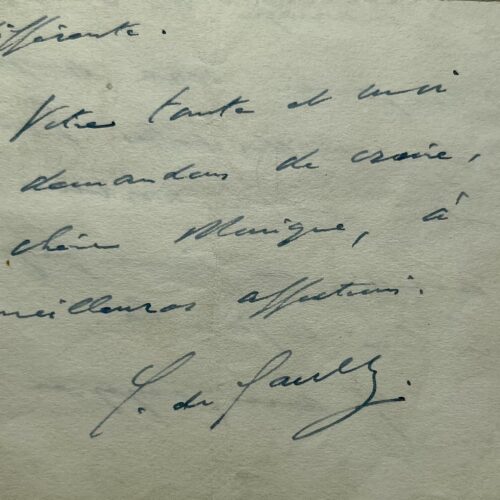 différente.
Votre tante et moi
demandons de croire,
chère Monique, à
meilleures affections.
C. de Gaulle.